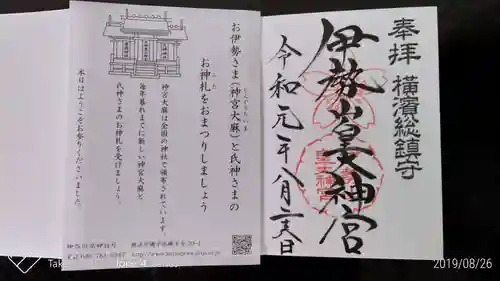 奉拝 横濱総鎮守
伊勢山皇大神宮
令和元年八月二六日
お伊勢さま(神宮大麻)と氏神さまの
お神札をおまつりしましょう
神宮大麻は全国の神社で頒布されています。
毎年暮れまでに新しい神宮大麻と
氏神さまのお神札を受けましょう。
本日はようこそお参りくださいました。
神奈川県神社庁
2019/08/26